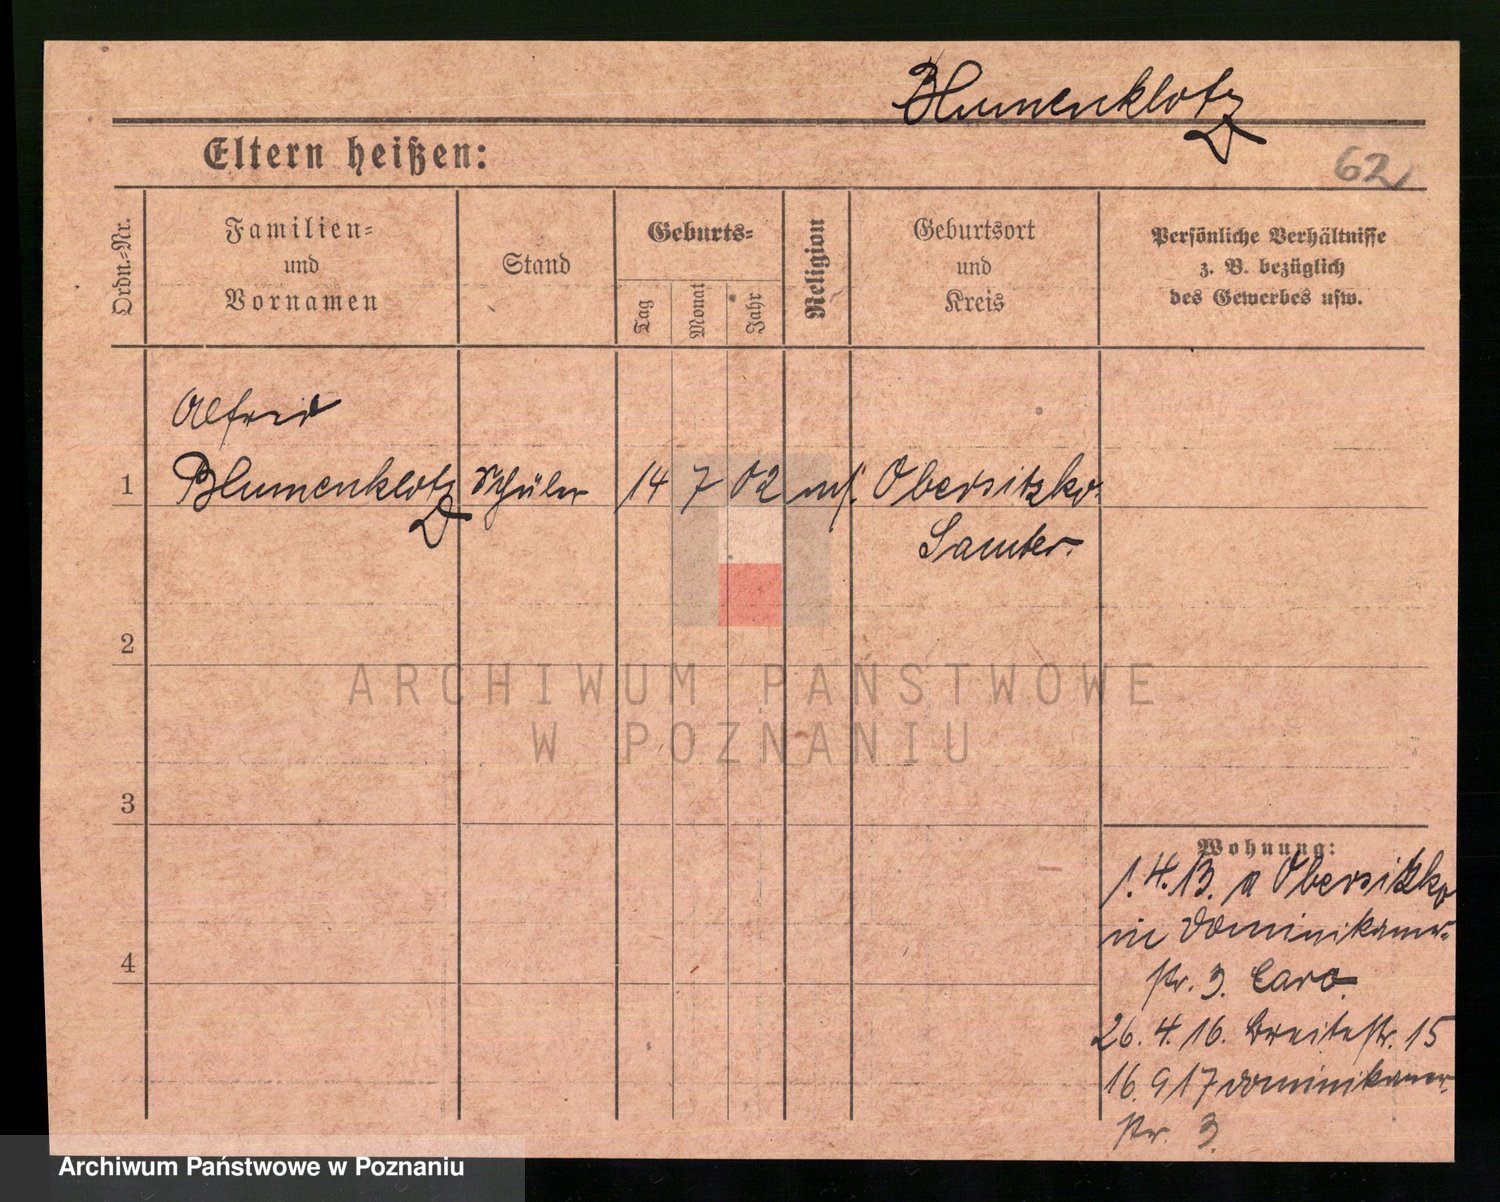 Blumenklotz
Eltern heißen:
62
Ordn.-Nr.
Familien-
und
Vornamen
Stand
Geburts-
Tag
Monat
Jahr
Religion
Geburtsort
und
Kreis
Persönliche Verhältnisse
z. B. bezüglich
des Gewerbes usw.
Alfred
1 Blumenklotz Schüler 14 7 02 Obersitzko
Samter.
2
ARCHIWUM PAŃSTWOWE
W POZNANIU
3
Wohnung:
1.4.13. a Obersitzko
in Dominikaner-
4
str. 3. Caro.
26.4.16. Breitestr. 15
16.9 17 Dominikaner-
str. 3.
Archiwum Państwowe w Poznaniu